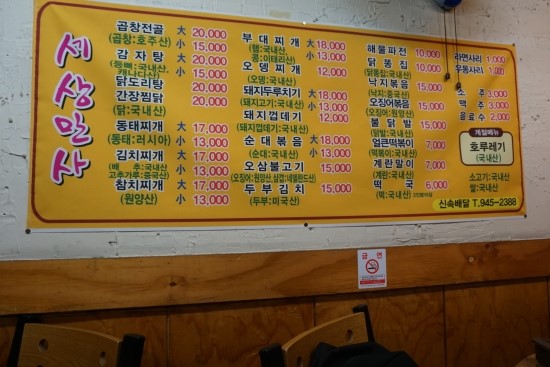 세상만사
곱창전골 대 20,000
(곱창:호주산) 소 15,000
감자탕 대 20,000
(등뼈:국내산, 캐나다산) 소 15,000
닭도리탕 20,000
간장찜닭 20,000
(닭:국내산)
동태찌개 대 17,000
(동태:러시아) 소 13,000
김치찌개 대 17,000
(배추:국내산 고추가루:중국산) 소 13,000
참치찌개 대 17,000
(원양산) 소 13,000
부대찌개 대 18,000
(햄:국내산, 소 13,000
오뎅찌개 12,000
(오뎅:국내산)
돼지두루치기 대 18,000
(돼지고기:국내산) 소 13,000
돼지껍데기 12,000
(돼지껍데기:국내산)
순대볶음 대 18,000
(순대:국내산) 소 13,000
오삼불고기 15,000
(오징어:원양산,삼겹:네델란드산)
두부김치 15,000
(두부:미국산)
해물파전 10,000
닭똥집 10,000
(닭똥집:국내산)
낙지볶음 15,000
(낙지:중국산)
오징어볶음 15,000
(오징어:원양산)
불닭발 15,000
(닭발:국내산)
얼큰떡볶이 7,000
(떡볶이:국내산)
계란말이 7,000
(계란:국내산)
떡국 6,000
(떡:국내산)
라면사리 1,000
우동사리 1,000
소주 3,000
맥주 3,000
음료수 2,000
계절메뉴
호루레기
(국내산)
소고기:국내산
쌀:국내산
신속배달 T.945-2388
금연